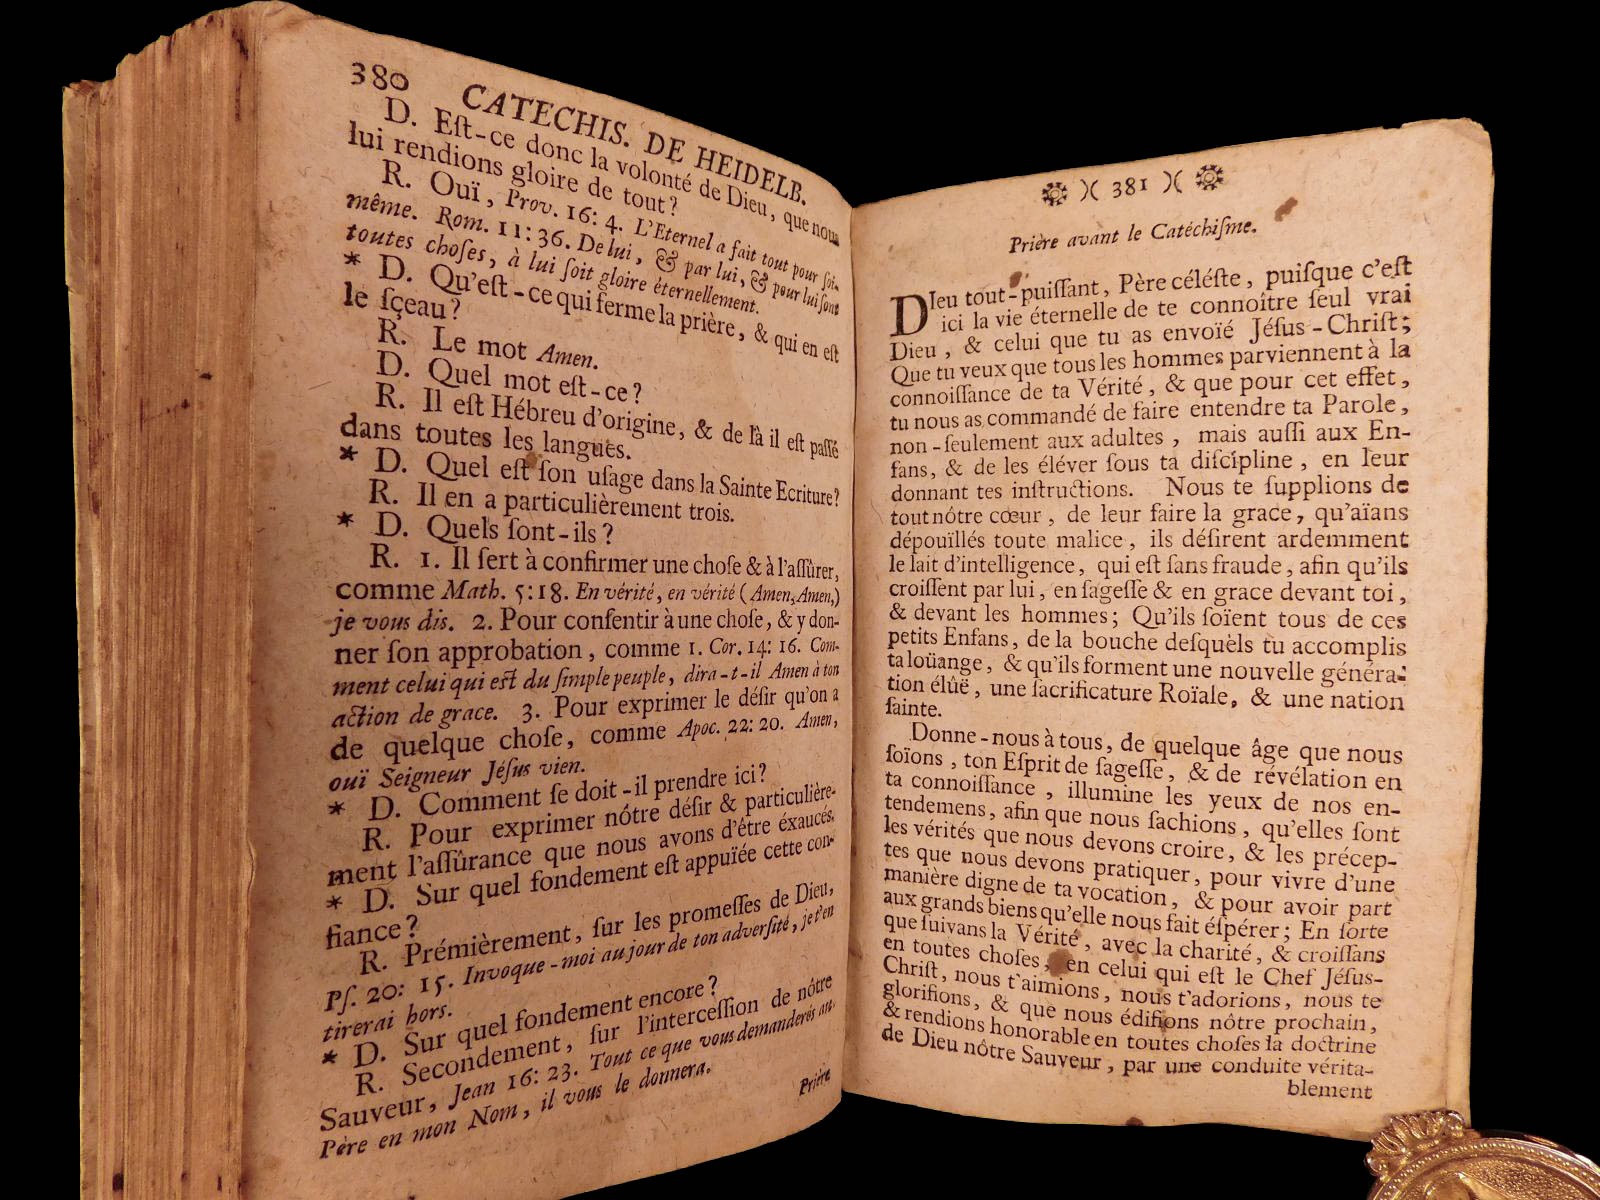 380 CATECHIS. DE HEIDELB.
D. Eſt-ce donc la volonté de Dieu, que nous
lui rendions gloire de tout?
R. Ouï, Prov. 16: 4. L'Eternel a fait tout pour ſoi-
même. Rom. 11: 36. De lui, & par lui, & pour lui ſont
toutes choſes, à lui ſoit gloire éternellement.
* D. Qu'eſt-ce qui ferme la prière, & qui en eſt
le ſçeau?
R. Le mot Amen.
D. Quel mot eſt-ce?
R. Il eſt Hébreu d'origine, & de là il eſt paſſé
dans toutes les langues.
* D. Quel eſt ſon uſage dans la Sainte Ecriture?
R. Il en a particulièrement trois.
* D. Quels ſont-ils?
R. 1. Il ſert à confirmer une choſe & à l'aſſûrer,
comme Math. 5:18. En vérité, en vérité (Amen, Amen,)
je vous dis. 2. Pour conſentir à une choſe, & y don-
ner ſon approbation, comme 1. Cor. 14: 16. Com-
ment celui qui eſt du ſimple peuple, dira-t-il Amen à ton
action de grace. 3. Pour exprimer le déſir qu'on a
de quelque choſe, comme Apoc. 22: 20. Amen,
ouï Seigneur Jéſus vien.
* D. Comment ſe doit-il prendre ici?
R. Pour exprimer nôtre déſir & particulière-
ment l'aſſûrance que nous avons d'être éxaucés.
* D. Sur quel fondement eſt appuïée cette con-
fiance?
R. Prémièrement, ſur les promeſſes de Dieu,
Pſ. 20: 15. Invoque-moi au jour de ton adverſité, je t'en
tirerai hors.
* D. Sur quel fondement encore?
R. Secondement, ſur l'interceſſion de nôtre
Sauveur, Jean 16: 23. Tout ce que vous demanderés au
Père en mon Nom, il vous le donnera.
Prière
)( 381 )(
Prière avant le Catéchiſme.
DIeu tout-puiſſant, Père céléſte, puiſque c'eſt
ici la vie éternelle de te connoître ſeul vrai
Dieu, & celui que tu as envoïé Jéſus-Chriſt;
Que tu veux que tous les hommes parviennent à la
connoiſſance de ta Vérité, & que pour cet effet,
tu nous as commandé de faire entendre ta Parole,
non-ſeulement aux adultes, mais auſſi aux En-
fans, & de les éléver ſous ta diſcipline, en leur
donnant tes inſtructions. Nous te ſupplions de
tout nôtre cœur, de leur faire la grace, qu'aïans
dépouïllés toute malice, ils déſirent ardemment
le lait d'intelligence, qui eſt ſans fraude, afin qu'ils
croiſſent par lui, en ſageſſe & en grace devant toi,
& devant les hommes; Qu'ils ſoïent tous de ces
petits Enfans, de la bouche deſquels tu accomplis
ta loüange, & qu'ils forment une nouvelle généra-
tion élûë, une ſacrificature Roïale, & une nation
ſainte.
Donne-nous à tous, de quelque âge que nous
ſoïons, ton Eſprit de ſageſſe, & de révélation en
ta connoiſſance, illumine les yeux de nos en-
tendemens, afin que nous ſachions, qu'elles ſont
les vérités que nous devons croire, & les précep-
tes que nous devons pratiquer, pour vivre d'une
manière digne de ta vocation, & pour avoir part
aux grands biens qu'elle nous fait éſpérer; En ſorte
que ſuivans la Vérité, avec la charité, & croiſſans
en toutes choſes, en celui qui eſt le Chef Jéſus-
Chriſt, nous t'aimions, nous t'adorions, nous te
glorifions, & que nous édifions nôtre prochain,
& rendions honorable en toutes choſes la doctrine
de Dieu nôtre Sauveur, par une conduite vérita-
blement